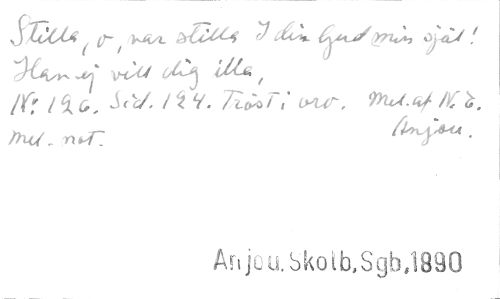 Stilla, o, var stilla I din Gud min själ!
Han ej vill dig illa,
N: 126. Sid. 124. Tröst i oro. Mel. af N. E.
Anjou.
Mel. not.
Anjou. Skolb. Sgb, 1890